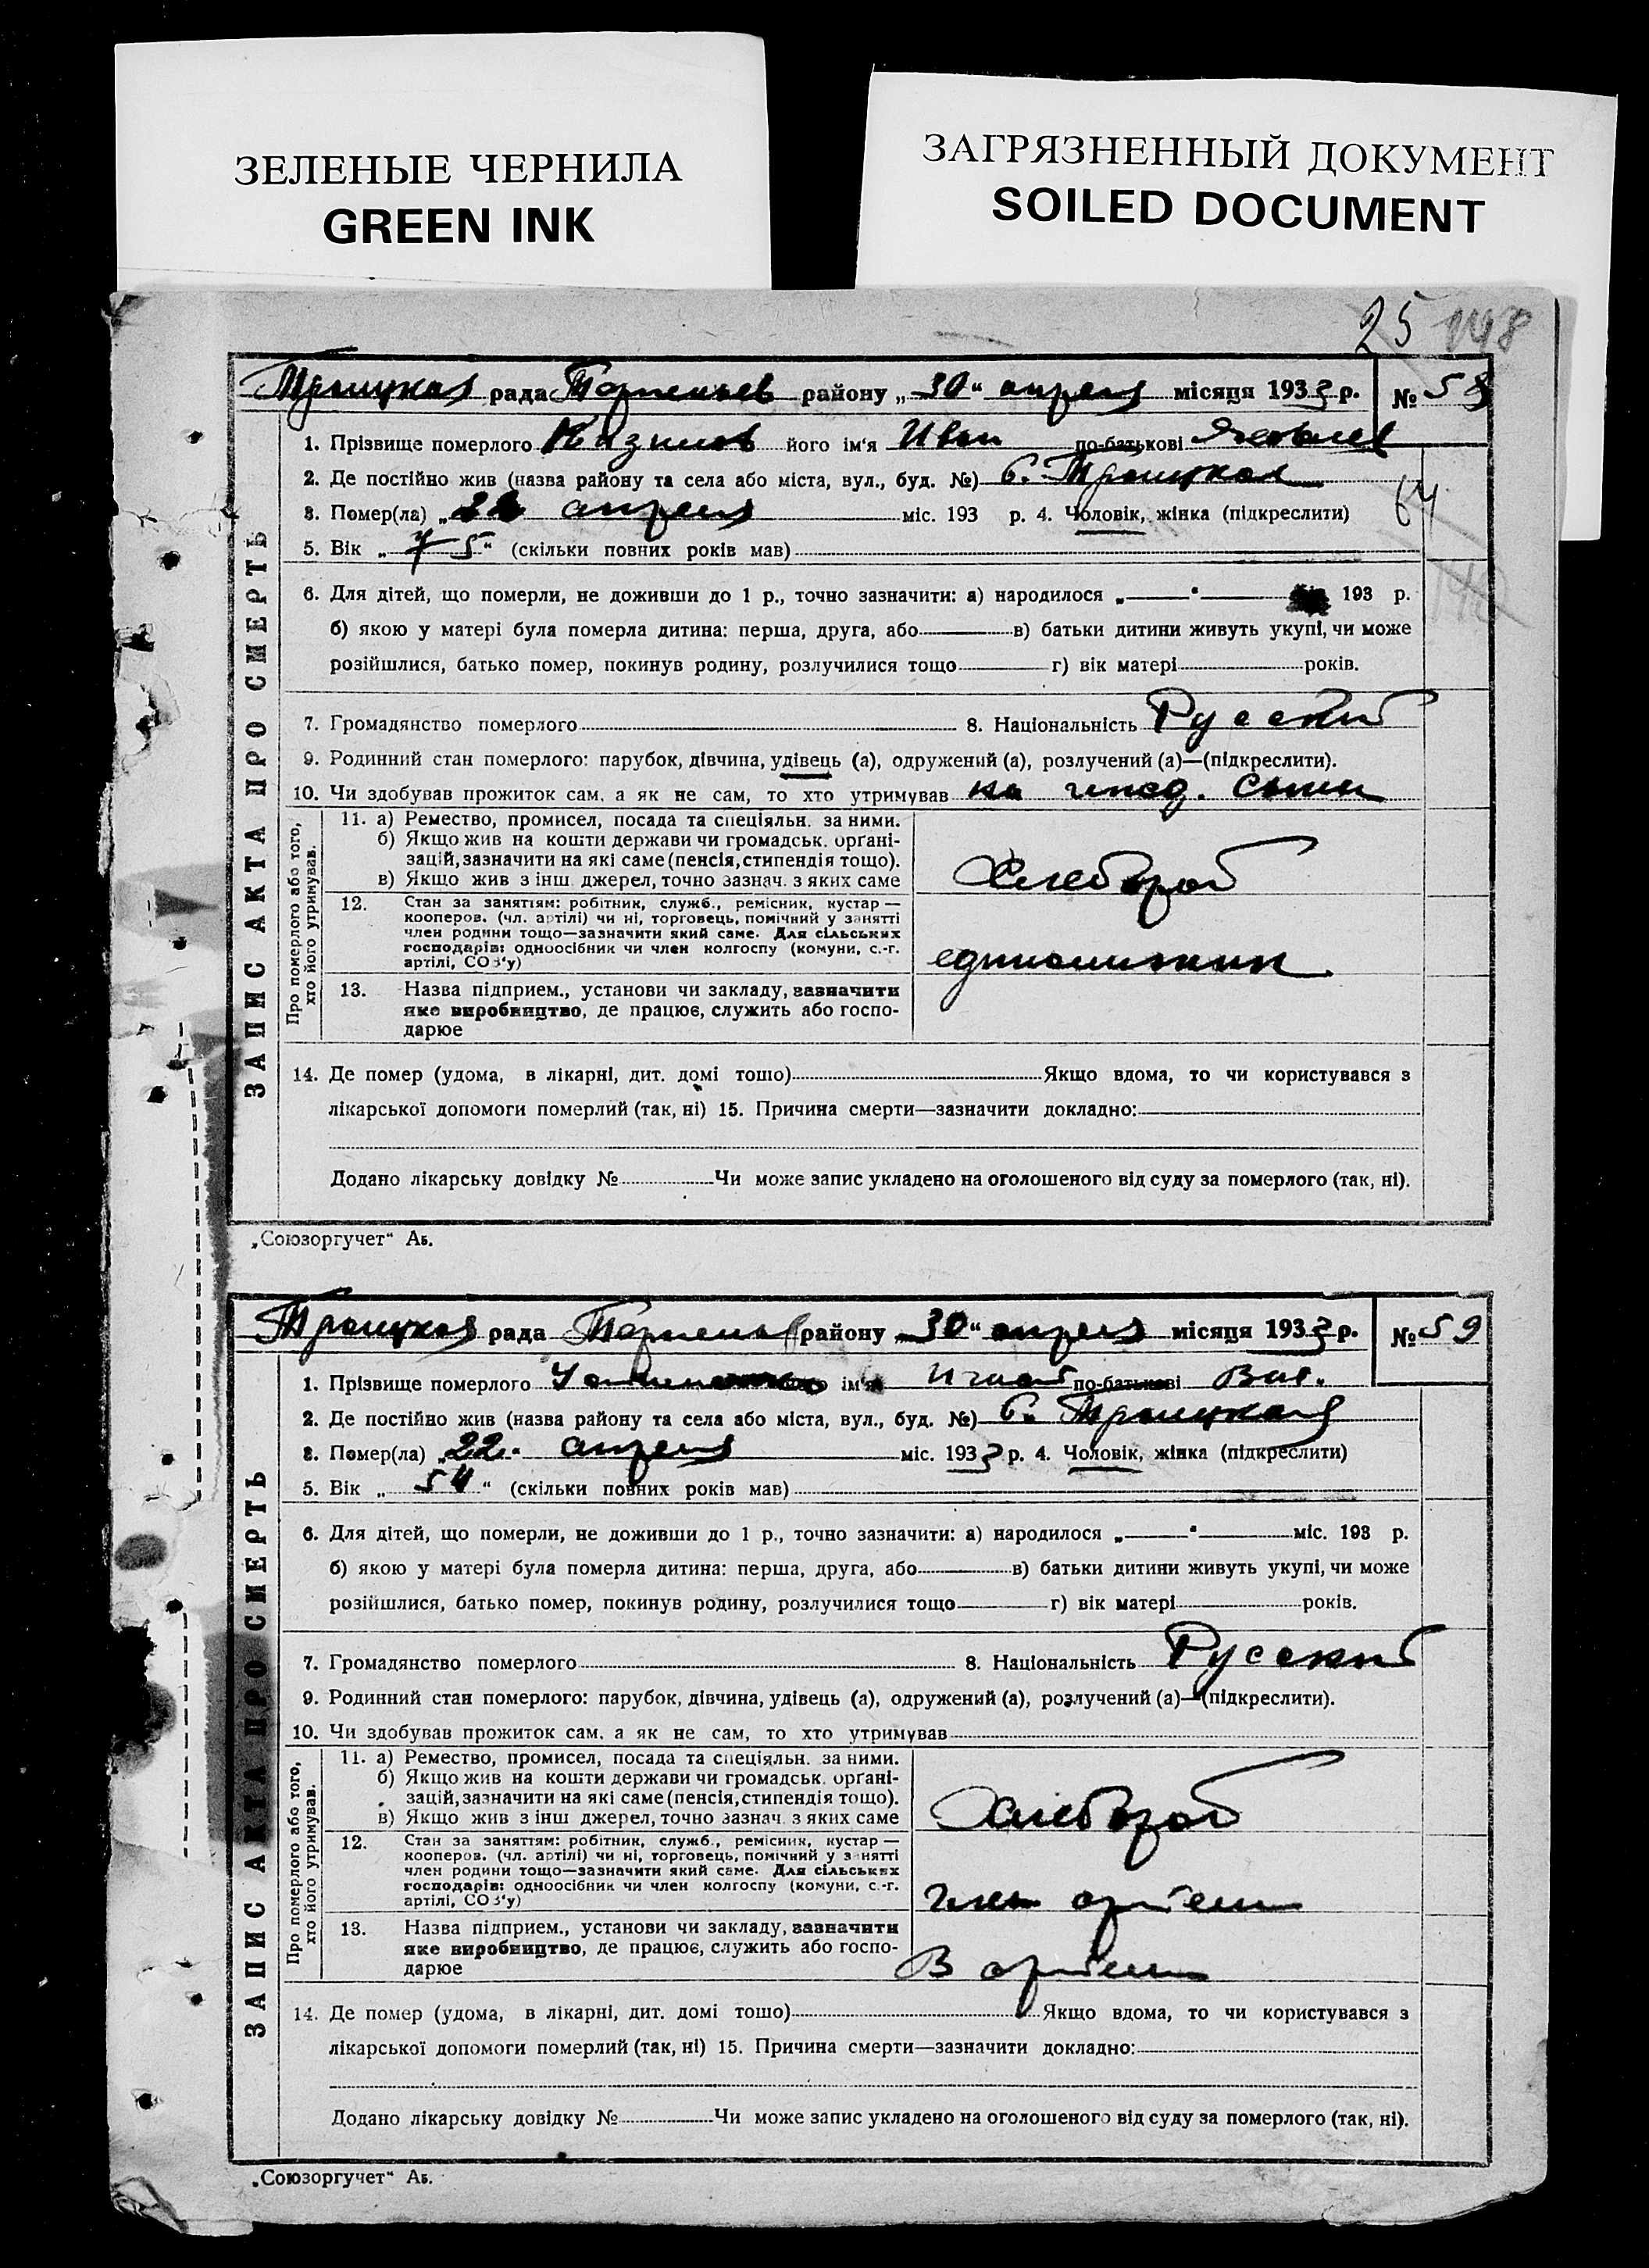 ЗЕЛЕНЫЕ ЧЕРНИЛА
GREEN INK
ЗАГРЯЗНЕННЫЙ ДОКУМЕНТ
SOILED DOCUMENT
25 148
Троицкая рада район у „30“ апреля місяця 1933 р. № 58
1. Прізвище померлого його ім'я Иван по-батькові Яковлев
2. Де постійно жив (назва району та села або міста, вул., буд. №) С. Троицкая
3. Помер(ла) „22 апреля міс. 193 р. 4. Чоловік, жінка (підкреслити)
64
5. Вік „75“ (скільки повних років мав)
6. Для дітей, що померли, не доживши до 1 р., точно зазначити: а) народилося „ “ 193 р.
б) якою у матері була померла дитина: перша, друга, або в) батьки дитини живуть укупі, чи може
розійшлися, батько помер, покинув родину, розлучилися тощо г) вік матері років.
7. Громадянство померлого 8. Національність Русский
9. Родинний стан померлого: парубок, дівчина, удівець (а), одружений (а), розлучений (а)—(підкреслити).
10. Чи здобував прожиток сам, а як не сам, то хто утримував на ижд. сына
ЗАПИС АКТА ПРО СМЕРТЬ
Про померлого або того, хто його утримував.
11. а) Ремество, промисел, посада та спеціяльн. за ними.
б) Якщо жив на кошти держави чи громадськ. орґані-
зацій, зазначити на які саме (пенсія, стипендія тощо).
в) Якщо жив з інш. джерел, точно зазнач. з яких саме
Хлебороб
12. Стан за заняттям: робітник, служб., ремісник, кустар—
кооперов. (чл. артілі) чи ні, торговець, помічний у занятті
член родини тощо—зазначити який саме. Для сільських
господарів: одноосібник чи член колгоспу (комуни, с.-г.
артілі, СОЗ'у)
единоличник
13. Назва підприєм., установи чи закладу, зазначити
яке виробництво, де працює, служить або госпо-
дарює
14. Де помер (удома, в лікарні, дит. домі тощо) Якщо вдома, то чи користувався з
лікарської допомоги померлий (так, ні) 15. Причина смерти—зазначити докладно:
Додано лікарську довідку № Чи може запис укладено на оголошеного від суду за померлого (так, ні).
„Союзоргучет“ Ав.
Троицкая рада району „30“ апреля місяця 1933 р. № 59
1. Прізвище померлого ім'я Игнат по-батькові Вас.
2. Де постійно жив (назва району та села або міста, вул., буд. №) С. Троицкая
3. Помер(ла) „22. апреля міс. 1933 р. 4. Чоловік, жінка (підкреслити)
5. Вік „54“ (скільки повних років мав)
6. Для дітей, що померли, не доживши до 1 р., точно зазначити: а) народилося „ “ міс. 193 р.
б) якою у матері була померла дитина: перша, друга, або в) батьки дитини живуть укупі, чи може
розійшлися, батько помер, покинув родину, розлучилися тощо г) вік матері років.
7. Громадянство померлого 8. Національність Русский
9. Родинний стан померлого: парубок, дівчина, удівець (а), одружений (а), розлучений (а)—(підкреслити).
10. Чи здобував прожиток сам, а як не сам, то хто утримував
ЗАПИС АКТА ПРО СМЕРТЬ
Про померлого або того, хто його утримував.
11. а) Ремество, промисел, посада та спеціяльн. за ними.
б) Якщо жив на кошти держави чи громадськ. орґані-
зацій, зазначити на які саме (пенсія, стипендія тощо).
в) Якщо жив з інш. джерел, точно зазнач. з яких саме
Хлебороб
12. Стан за заняттям: робітник, служб., ремісник, кустар—
кооперов. (чл. артілі) чи ні, торговець, помічний у занятті
член родини тощо—зазначити який саме. Для сільських
господарів: одноосібник чи член колгоспу (комуни, с.-г.
артілі, СОЗ'у)
Член артели
13. Назва підприєм., установи чи закладу, зазначити
яке виробництво, де працює, служить або госпо-
дарює
В артели
14. Де помер (удома, в лікарні, дит. домі тощо) Якщо вдома, то чи користувався з
лікарської допомоги померлий (так, ні) 15. Причина смерти—зазначити докладно:
Додано лікарську довідку № Чи може запис укладено на оголошеного від суду за померлого (так, ні).
„Союзоргучет“ Ав.